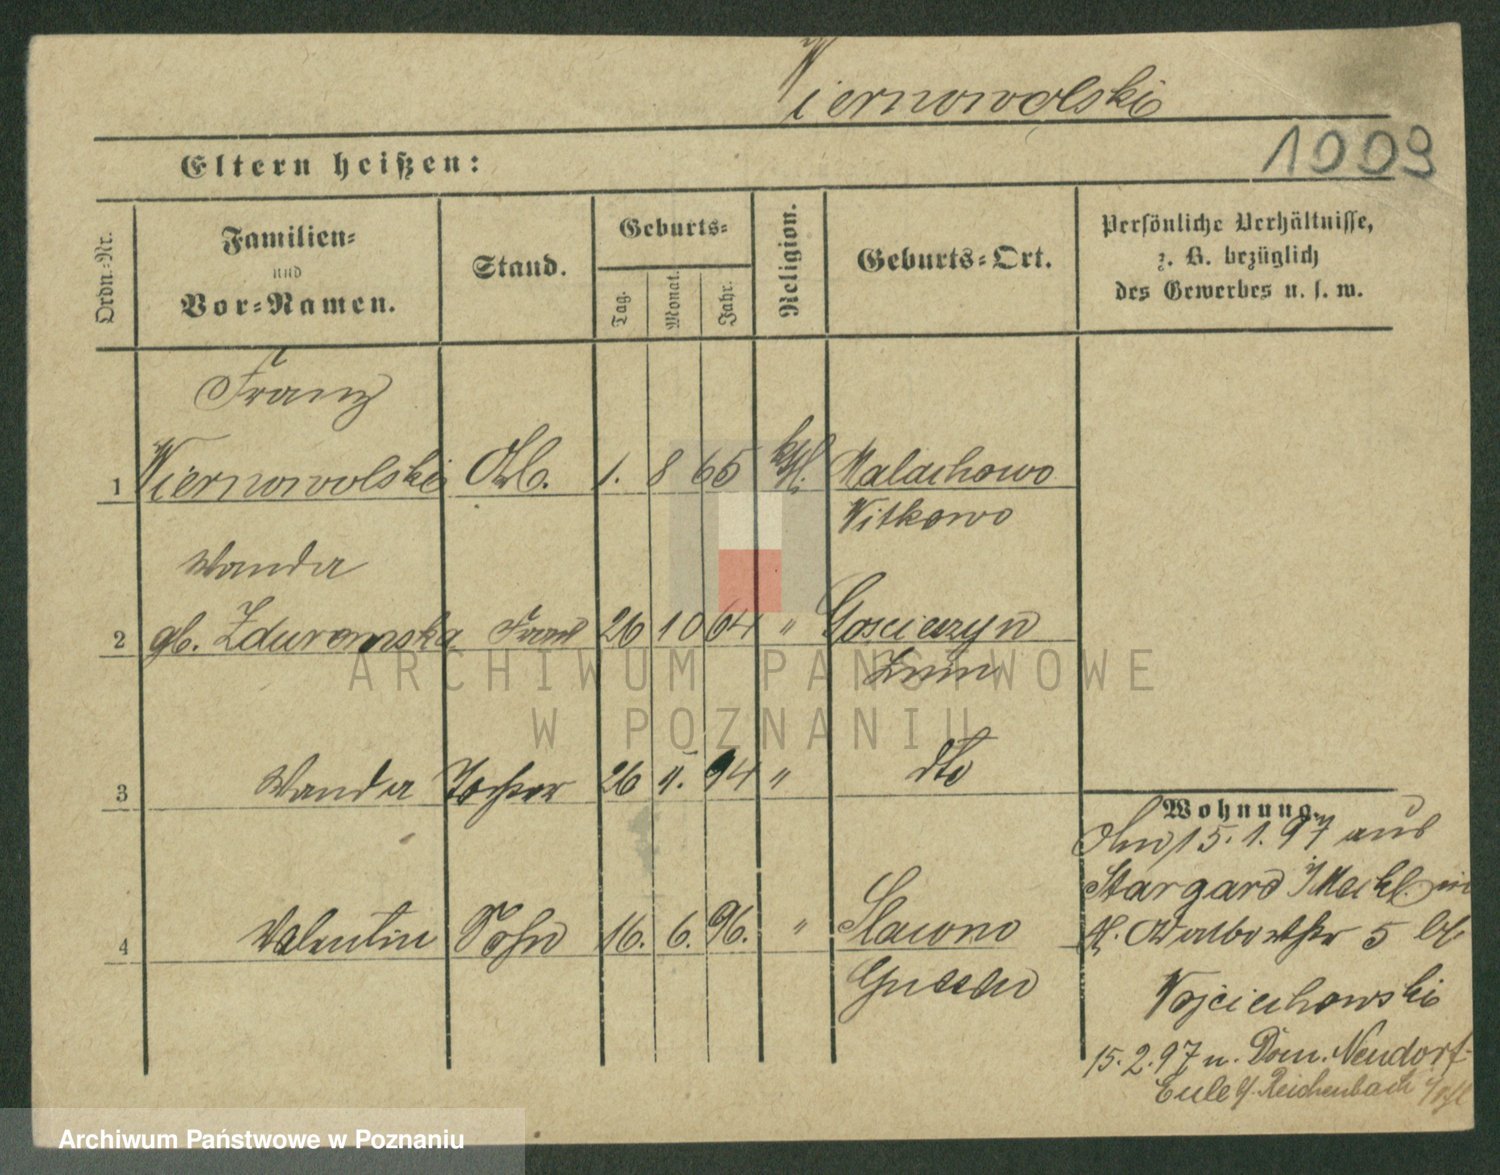 Wiernowolski
1009
Eltern heißen:
Ordn.=Nr.
Familien=
und
Vor=Namen.
Stand.
Geburts=
Tag.
Monat.
Jahr.
Religion.
Geburts=Ort.
Persönliche Verhältnisse,
z. B. bezüglich
des Gewerbes u. s. w.
Franz
1 Wiernowolski Arb. 1. 8 65 kth. Malachowo
Witkowo
Wanda
2 gb. Zdurowska Frau 26 10 64 " Goscieszyn
Znin
3 Wanda Tochter 26 94 " dto
Wohnung.
Am 15.1.97 aus
Stargard i/Meckl. in
4 Valentin Sohn 16. 6. 96. " Slawno
5 bb
Gnesen
Wojciechowski
15.2.97 n. Dom. Neudorf-
Eule b/ Reichenbach
ARCHIWUM PAŃSTWOWE
W POZNANIU
Archiwum Państwowe w Poznaniu